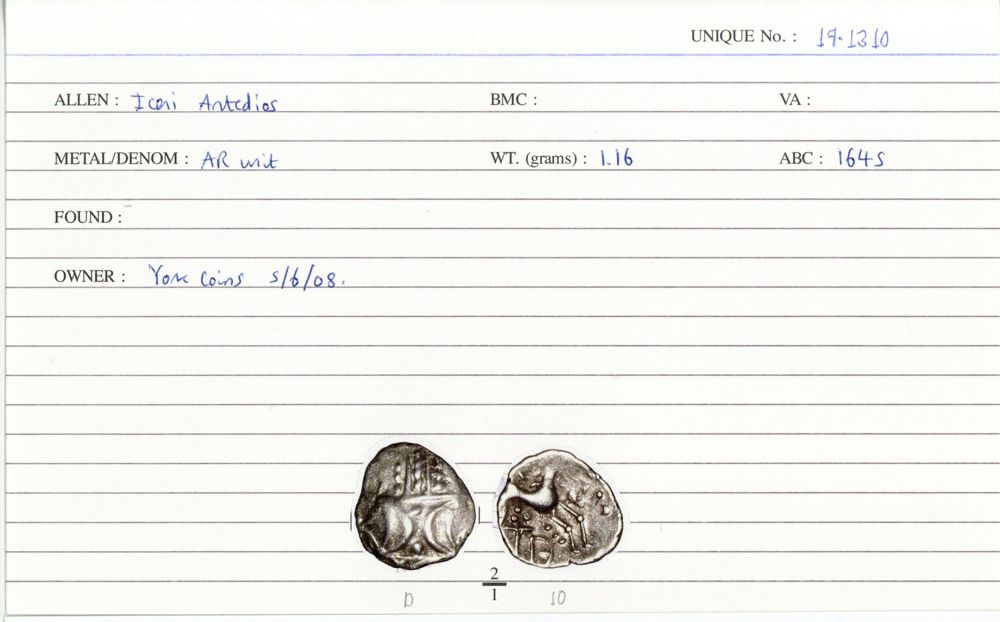 UNIQUE No. : 19.1310
ALLEN : Iceni Antedios BMC : VA :
METAL/DENOM : AR unit WT. (grams) : 1.16 ABC : 1645
FOUND :
OWNER : York Coins 5/6/08.
2
1
D 10